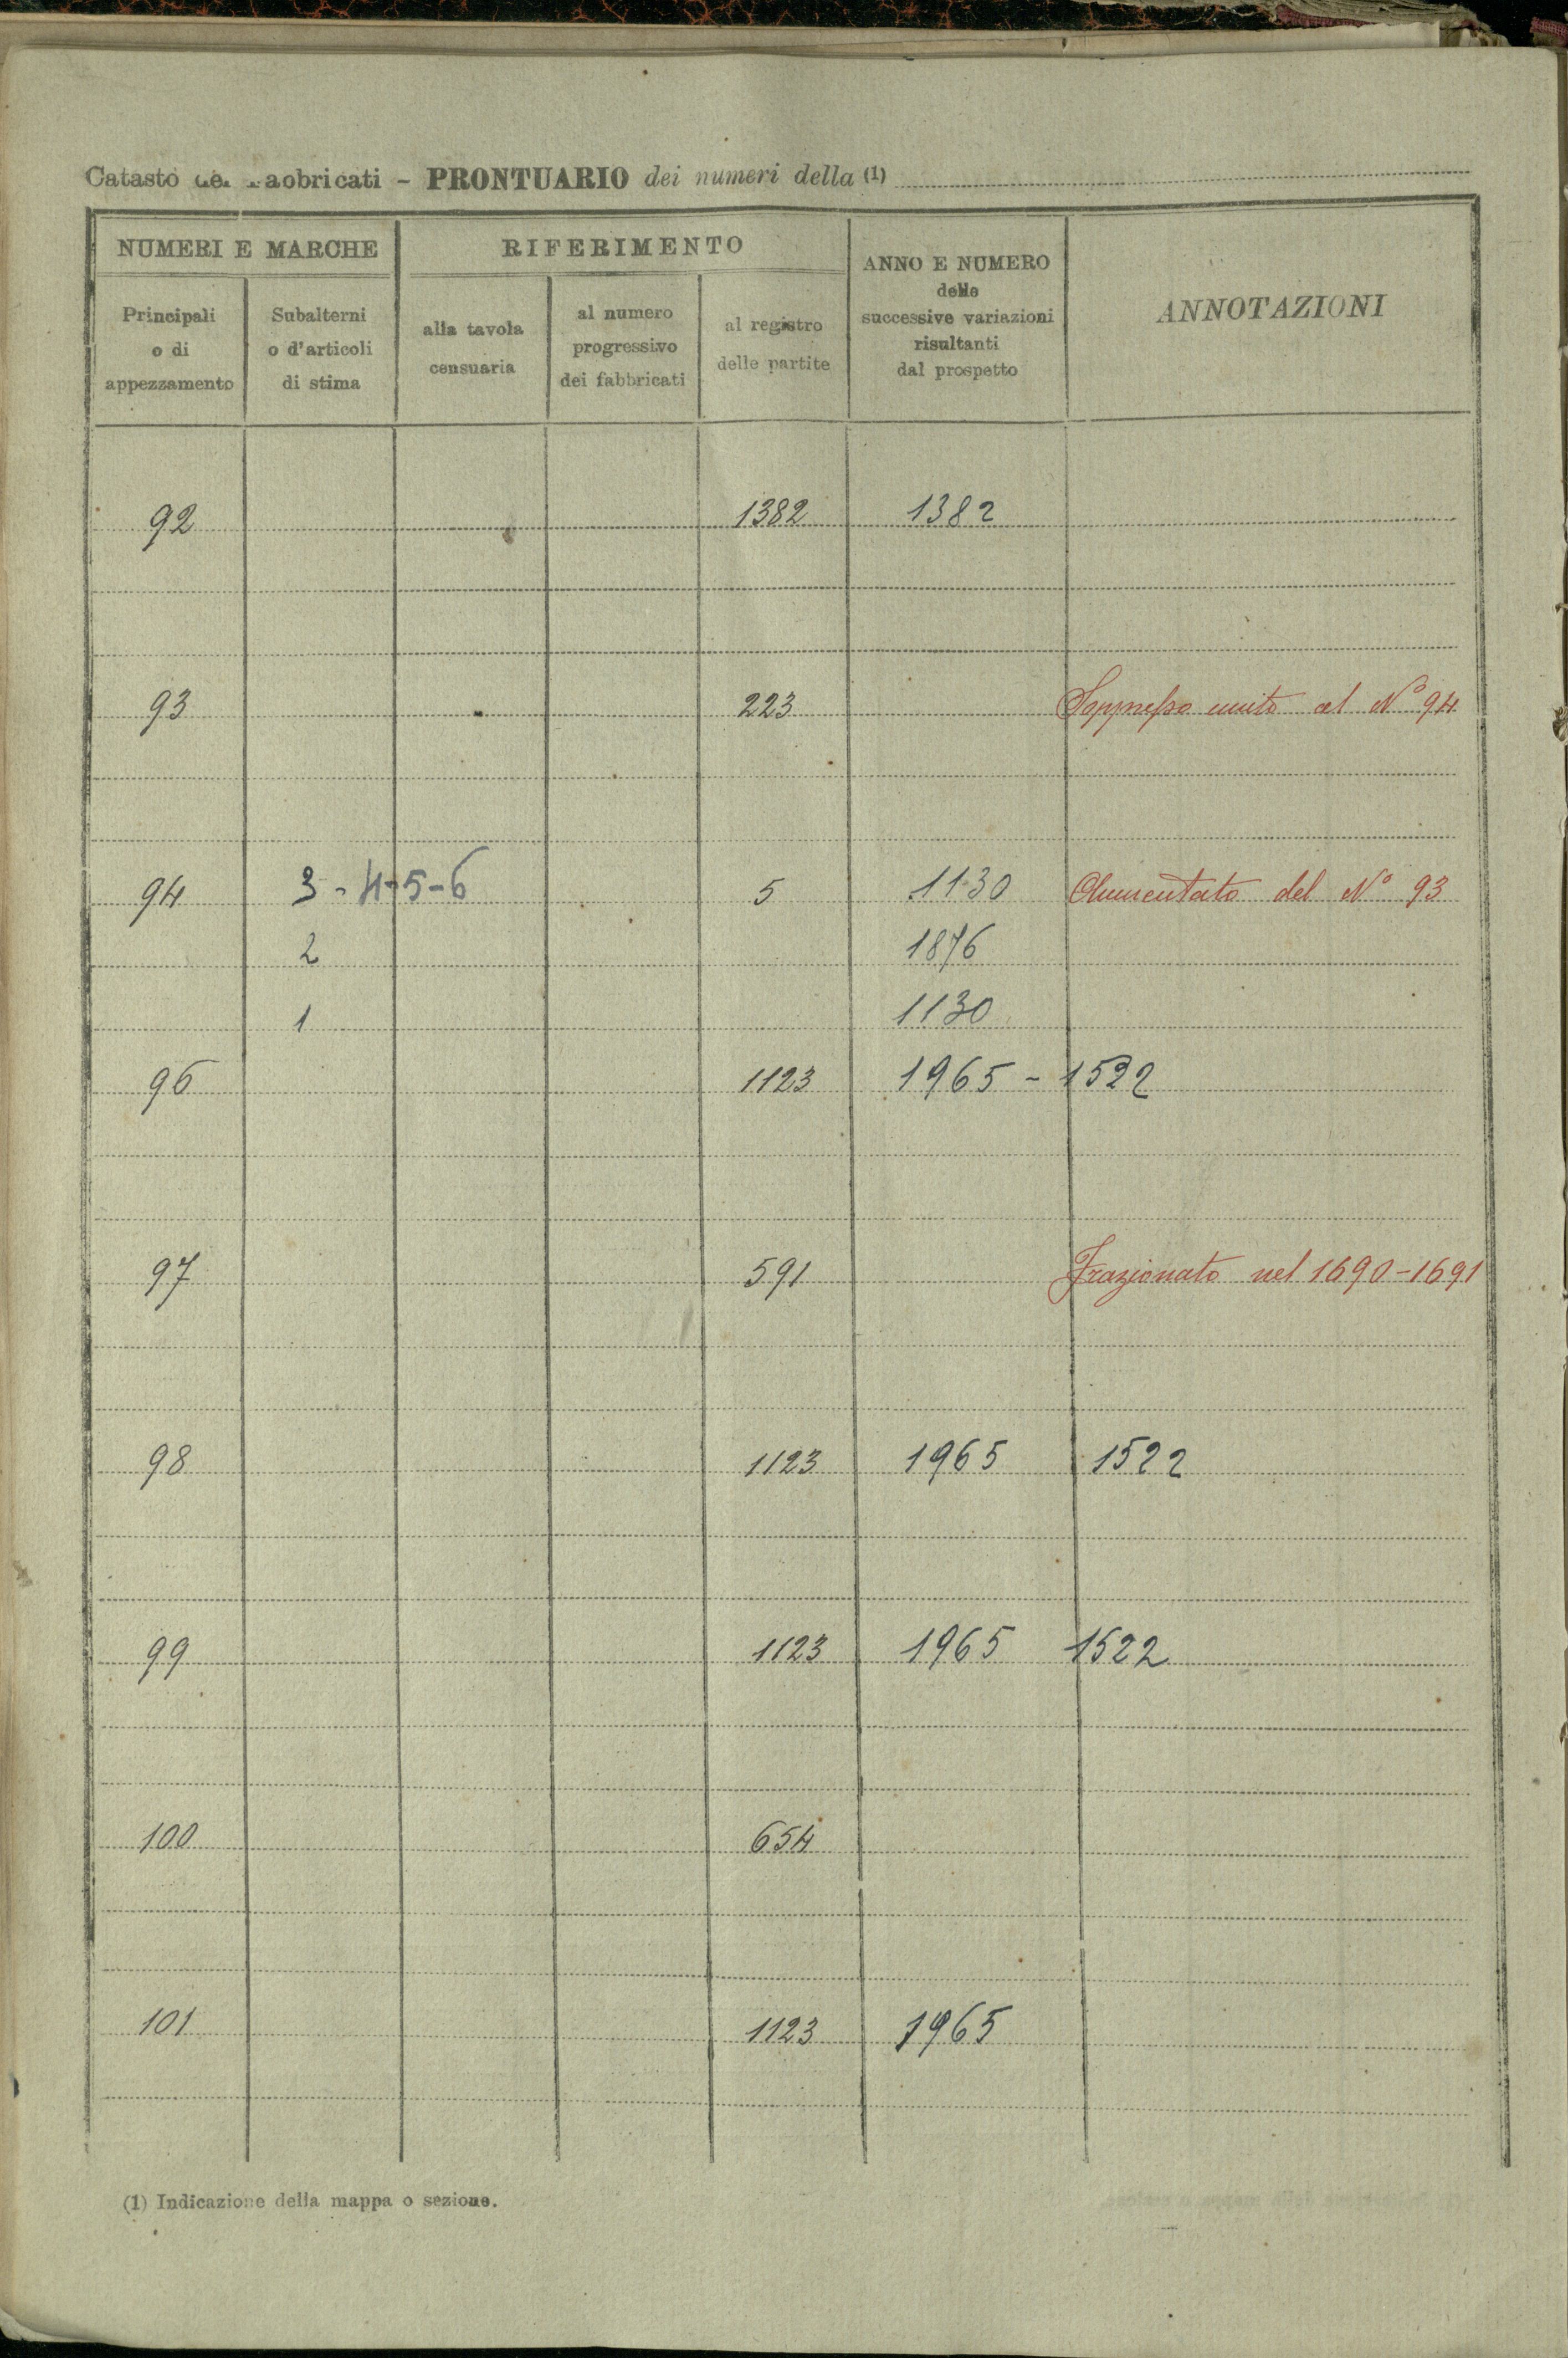 Catasto dei Fabbricati - PRONTUARIO dei numeri della (1)
NUMERI E MARCHE
RIFERIMENTO
ANNO E NUMERO
delle
successive variazioni
risultanti
dal prospetto
ANNOTAZIONI
Principali
o di
appezzamento
Subalterni
o d'articoli
di stima
alla tavola
censuaria
al numero
progressivo
dei fabbricati
al registro
delle partite
92 1382 1382
93 223 Soppresso unito al N° 94
94 3-4-5-6 5 1130 Aumentato del N° 93
2 1876
1 1130
96 1123 1965 - 1522
97 591 Frazionato nel 1690-1691
98 1123 1965 1522
99 1123 1965 1522
100 654
101 1123 1965
(1) Indicazione della mappa o sezione.